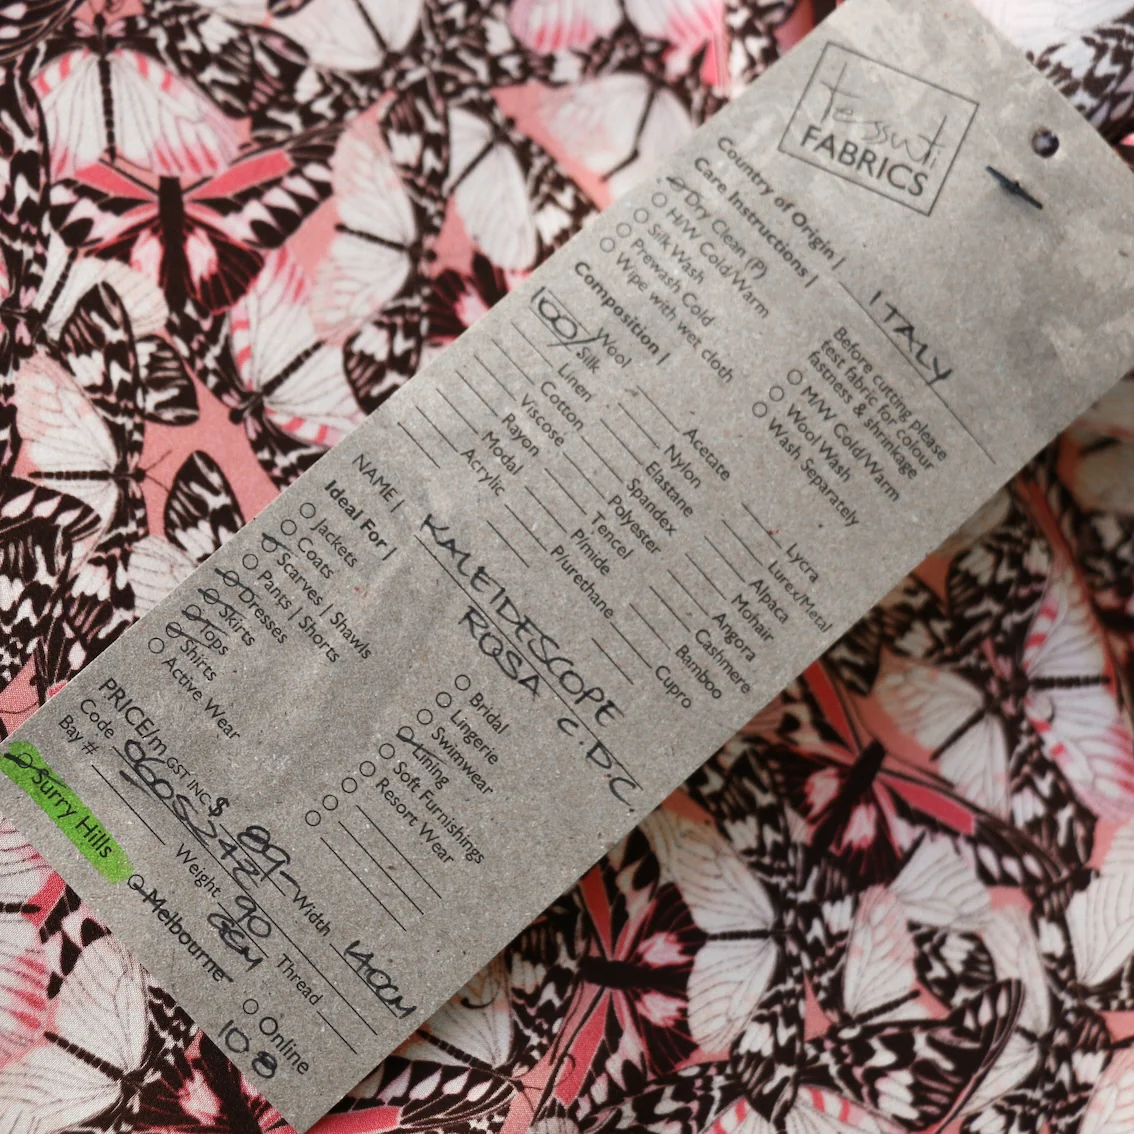 Tessuti
FABRICS
Country of Origin | ITALY
Care Instructions |
Dry Clean (P)
H/W Cold/Warm
Silk Wash
Prewash Cold
Wipe with wet cloth
Before cutting please
test fabric for colour
fastness & shrinkage
M/W Cold/Warm
Wool Wash
Wash Separately
Composition |
Wool
100/ Silk
Linen
Cotton
Viscose
Rayon
Modal
Acrylic
Acetate
Nylon
Elastane
Spandex
Polyester
Tencel
Pimide
Plurethane
Lycra
Lurex/Metal
Alpaca
Mohair
Angora
Cashmere
Bamboo
Cupro
NAME | KALEIDESCOPE
ROSA C.D.C.
Ideal For |
Jackets
Coats
Scarves | Shawls
Pants | Shorts
Dresses
Skirts
Tops
Shirts
Active Wear
Bridal
Lingerie
Swimwear
Lining
Soft Furnishings
Resort Wear
PRICE/m GST INC $ 89- Width 140CM
Code Weight 90 Thread
Bay #
Surry Hills
Melbourne
Online
108